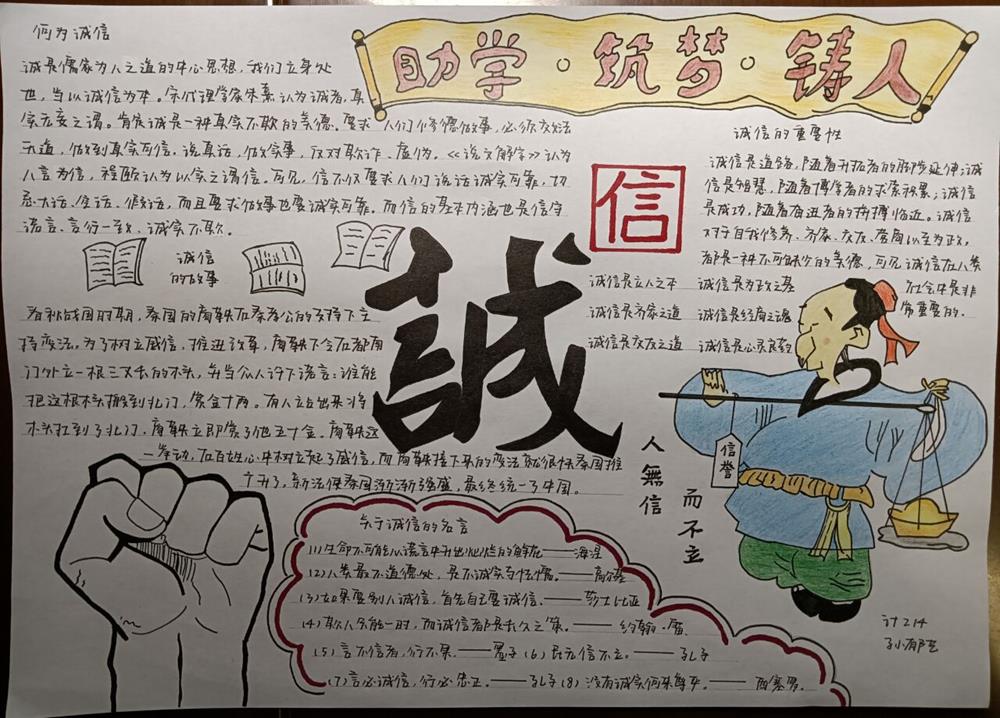 助学·筑梦·铸人
何为诚信
诚是儒家为人之道的中心思想，我们立身处
世，当以诚信为本。宋代理学家朱熹认为诚者，真
实无妄之谓。肯定诚是一种真实不欺的美德。要求人们修德做事，必须效法
天道，做到真实可信。说真话，做实事，反对欺诈、虚伪。《说文解字》认为
人言为信，程颐认为以实之谓信。可见，信不仅要求人们说话诚实可靠，切
忌大话、空话、假话，而且要求做事也要诚实可靠。而信的基本内涵也是信守
诺言、言行一致、诚实不欺。
诚信
的故事
春秋战国时期，秦国的商鞅在秦孝公的支持下主
持变法。为了树立威信，推进改革，商鞅下令在都南
门外立一根三丈长的木头，并当众人许下诺言：谁能
把这根木头搬到北门，赏金十两。有人立出来将
木头扛到了北门，商鞅立即赏了他五十金。商鞅这
一举动，在百姓心中树立起了威信，而商鞅接下来的变法就很快秦国推
广开了，新法使秦国渐渐强盛，最终统一了中国。
誠
信
诚信的重要性
诚信是道路，随着开拓者的脚步延伸；诚
信是智慧，随着博学者的求索积累；诚信
是成功，随着奋进者的拼搏临近。诚信
对于自我修养、齐家、交友、营商以至为政，
都是一种不可缺少的美德，可见诚信在人类
社会中是非
常重要的.
诚信是立人之本 诚信是为政之基
诚信是齐家之道 诚信是经商之魂
诚信是交友之道 诚信是心灵良药
信誉
人無信
而不立
关于诚信的名言
(1)生命不可能从谎言中开出灿烂的鲜花——海涅
(2)人类最不道德处，是不诚实与怯懦。——高尔基
(3)如果要别人诚信，首先自己要诚信.——莎士比亚
(4)欺人只能一时，而诚信都是长久之策。——约翰·雷
(5)言不信者，行不果.——墨子 (6)民无信不立.——孔子
(7)言必诚信，行必忠正。——孔子 (8)没有诚实何来尊严。——西塞罗.
计214